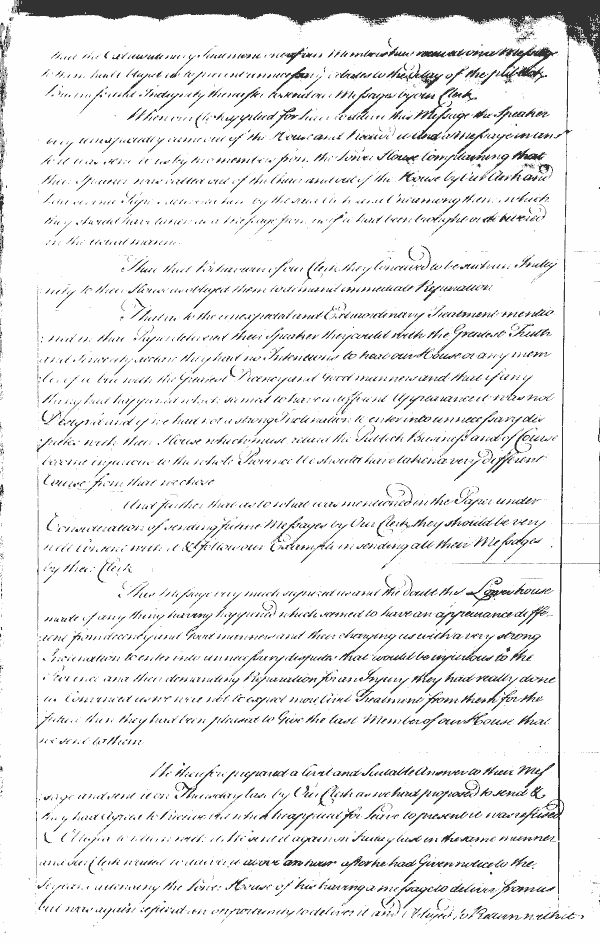 that the Extraordinary Treatment one of our Members has received since Message
to them had obliged us to prevent unnecessary delay of the publick
Business and Indignity thereafter to send our Messages by our Clerk
When our Clerk applyed for leave to deliver this Message the Speaker
very unexpectedly came out of the House and received it and a Message in answer
to it was sent to us by two members from the Lower House Complaining that
their Speaker was called out of the Chair and out of the House by Our Clerk and
that a Paper delivered him by the said Clerk which
they should have taken as a Message from us if it had been brought or delivered
in the usual manner
That that Behaviour of our Clerk they conceived to be such an Indig
nity to their House as obliged them to demand immediate Reparation
That as to the unexpected and Extraordinary Treatment mentio
ned in that Paper delivered their Speaker they could with the Greatest Truth
and Sincerity declare they had no Intentions to treat our House or any mem
ber of it but with the Greatest Decency and Good manners and that if any
thing had happened which seemed to have a different Appearance it was not
Designed and if we had not a strong Inclination to enter into unnecessary dis
putes with their House which must retard the Publick Business and of Course
become injurious to the whole Province We should have taken a very different
Course from that we chose
And further that as to what was mentioned in the Paper under
Consideration of sending future Messages by Our Clerk they should be very
well content with it & follow our Example in sending all their Messages
by their Clerk
This Message very much surprized us and the doubt the Lower house
made of any thing having happened which seemed to have an appearance diffe
rent from decency and Good manners and their charging us with a very strong
Inclination to enter into unnecessary disputes that would be injurious to the
Province and their demanding Reparation for an Injury they had really done
us Convinced us we were not to expect more Civil Treatment from them for the
future than they had been pleased to Give the last Member of our House that
we sent to them
We therefore prepared a Civil and Suitable Answer to their Mes
sage and sent it on Thursday last by Our Clerk as we had proposed to send &
they had Agreed to Receive but when he applied for Leave to present it was refused
& Obliged to return with it We sent it again on Tuesday last in the same manner
and our Clerk waited to deliver it above an hour after he had Given notice to the
Serjeant attending the Lower House of his having a message to deliver from us
but was again refused an opportunity to deliver it and Obliged to Return with it